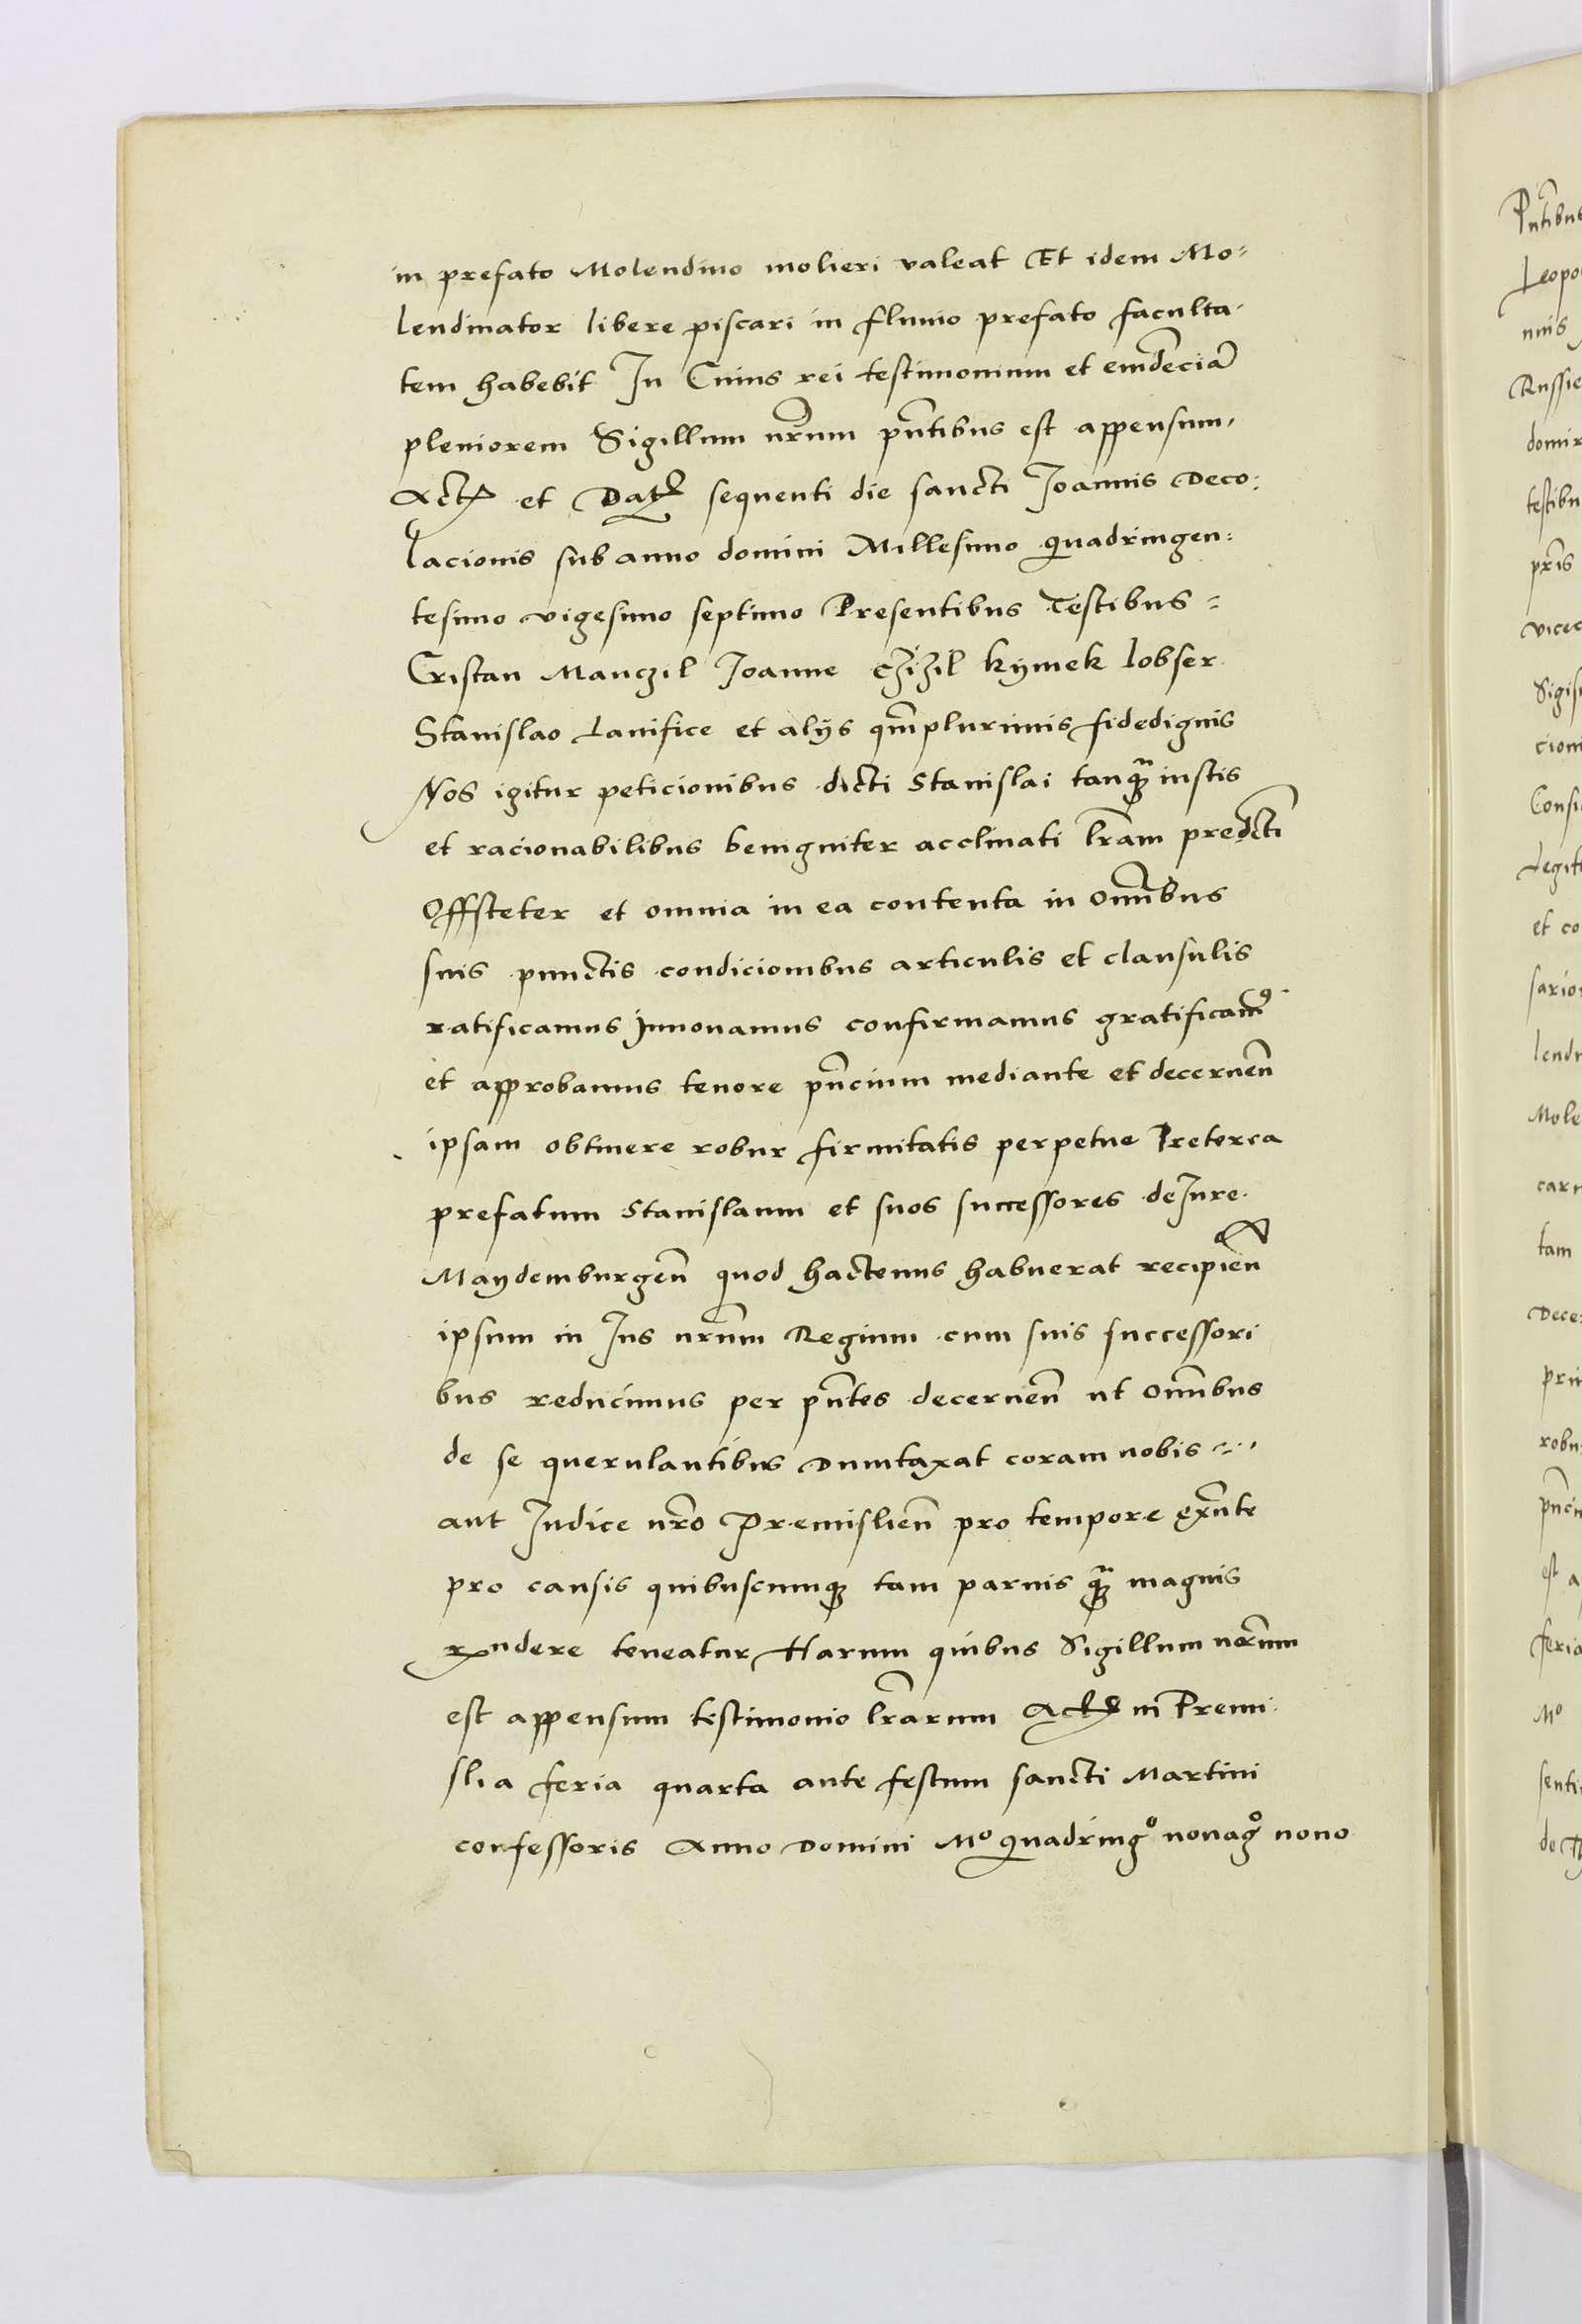 in prefato Molendino molieri valeat Et idem Mo-
lendinator libere piscari in fluuio prefato faculta-
tem habebit In Cuius rei testimonium et euidẽciã
pleniorem Sigillum nrũm pñtibus est appensum,
Act et Dat sequenti die sancti Joannis Deco:
lacionis sub anno domini Millesimo quadringen:
tesimo vigesimo septimo Presentibus Testibus =
Cristan Manczil Joanne czizil kymek lobser
Stanislao Lanifice et alijs qm̃plurimis fidedignis
Nos igitur peticionibus dicti Stanislai tanqꝫ iustis
et racionabilibus benigniter acclinati lrãm predcti
Offsteter et omnia in ea contenta in om̃ibus
suis punctis condicionibus articulis et clausulis
ratificamus Innouamus confirmamus gratificamꝰ
et approbamus tenore pñcium mediante et decerneñ
ipsam obtinere robur firmitatis perpetue Preterea
prefatum Stanislaum et suos successores de Jure
Maydemburgeñ quod hactenus habuerat recipieñ
ipsum in Jus nrũm Regium cum suis successori
bus reducimus per pñtes decerneñ ut om̃ibus
de se querulantibus Dumtaxat coram nobis
aut Judice nrõ Premislieñ pro tempore exñte
pro causis quibuscumqꝫ tam paruis qꝫ magnis
rñdere teneatur Harum quibus Sigillum nrũm
est appensum testimonio lrãrum Act in Premi
slia feria quarta ante festum sancti Martini
confessoris Anno Domini Mº quadringº nonagº nono
Pñtibus
Leopo
nnis
Russie
domin
testibu
prĩs
vicec
Sigis
cioni
Consi
Legit
et co
sario
lendi
Mole
carn
tam
Dece
pri
robu
pñci
est a
feria
Mº
senti
de